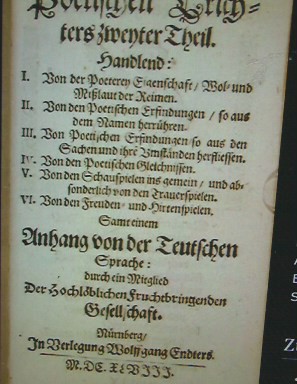 Poetischen Trich-
ters zweyter Theil.
Handlend:
I. Von der Poeterey Eigenschaft/ Wol- und
Mißlaut der Reimen.
II. Von den Poetischen Erfindungen/ so aus
dem Namen herrühren.
III. Von Poetischen Erfindungen so aus den
Sachen und ihren Umständen herfliessen.
IV. Von den Poetischen Gleichnissen.
V. Von den Schauspielen ins gemein/ und ab-
sonderlich von den Trauerspielen.
VI. Von den Freuden- und Hirtenspielen.
Samt einem
Anhang von der Teutschen
Sprache:
durch ein Mitglied
Der Hochlöblichen Fruchtbringenden
Gesellschaft.
Nürnberg/
In Verlegung Wolffgang Endters.
M.DC.XLVIII.